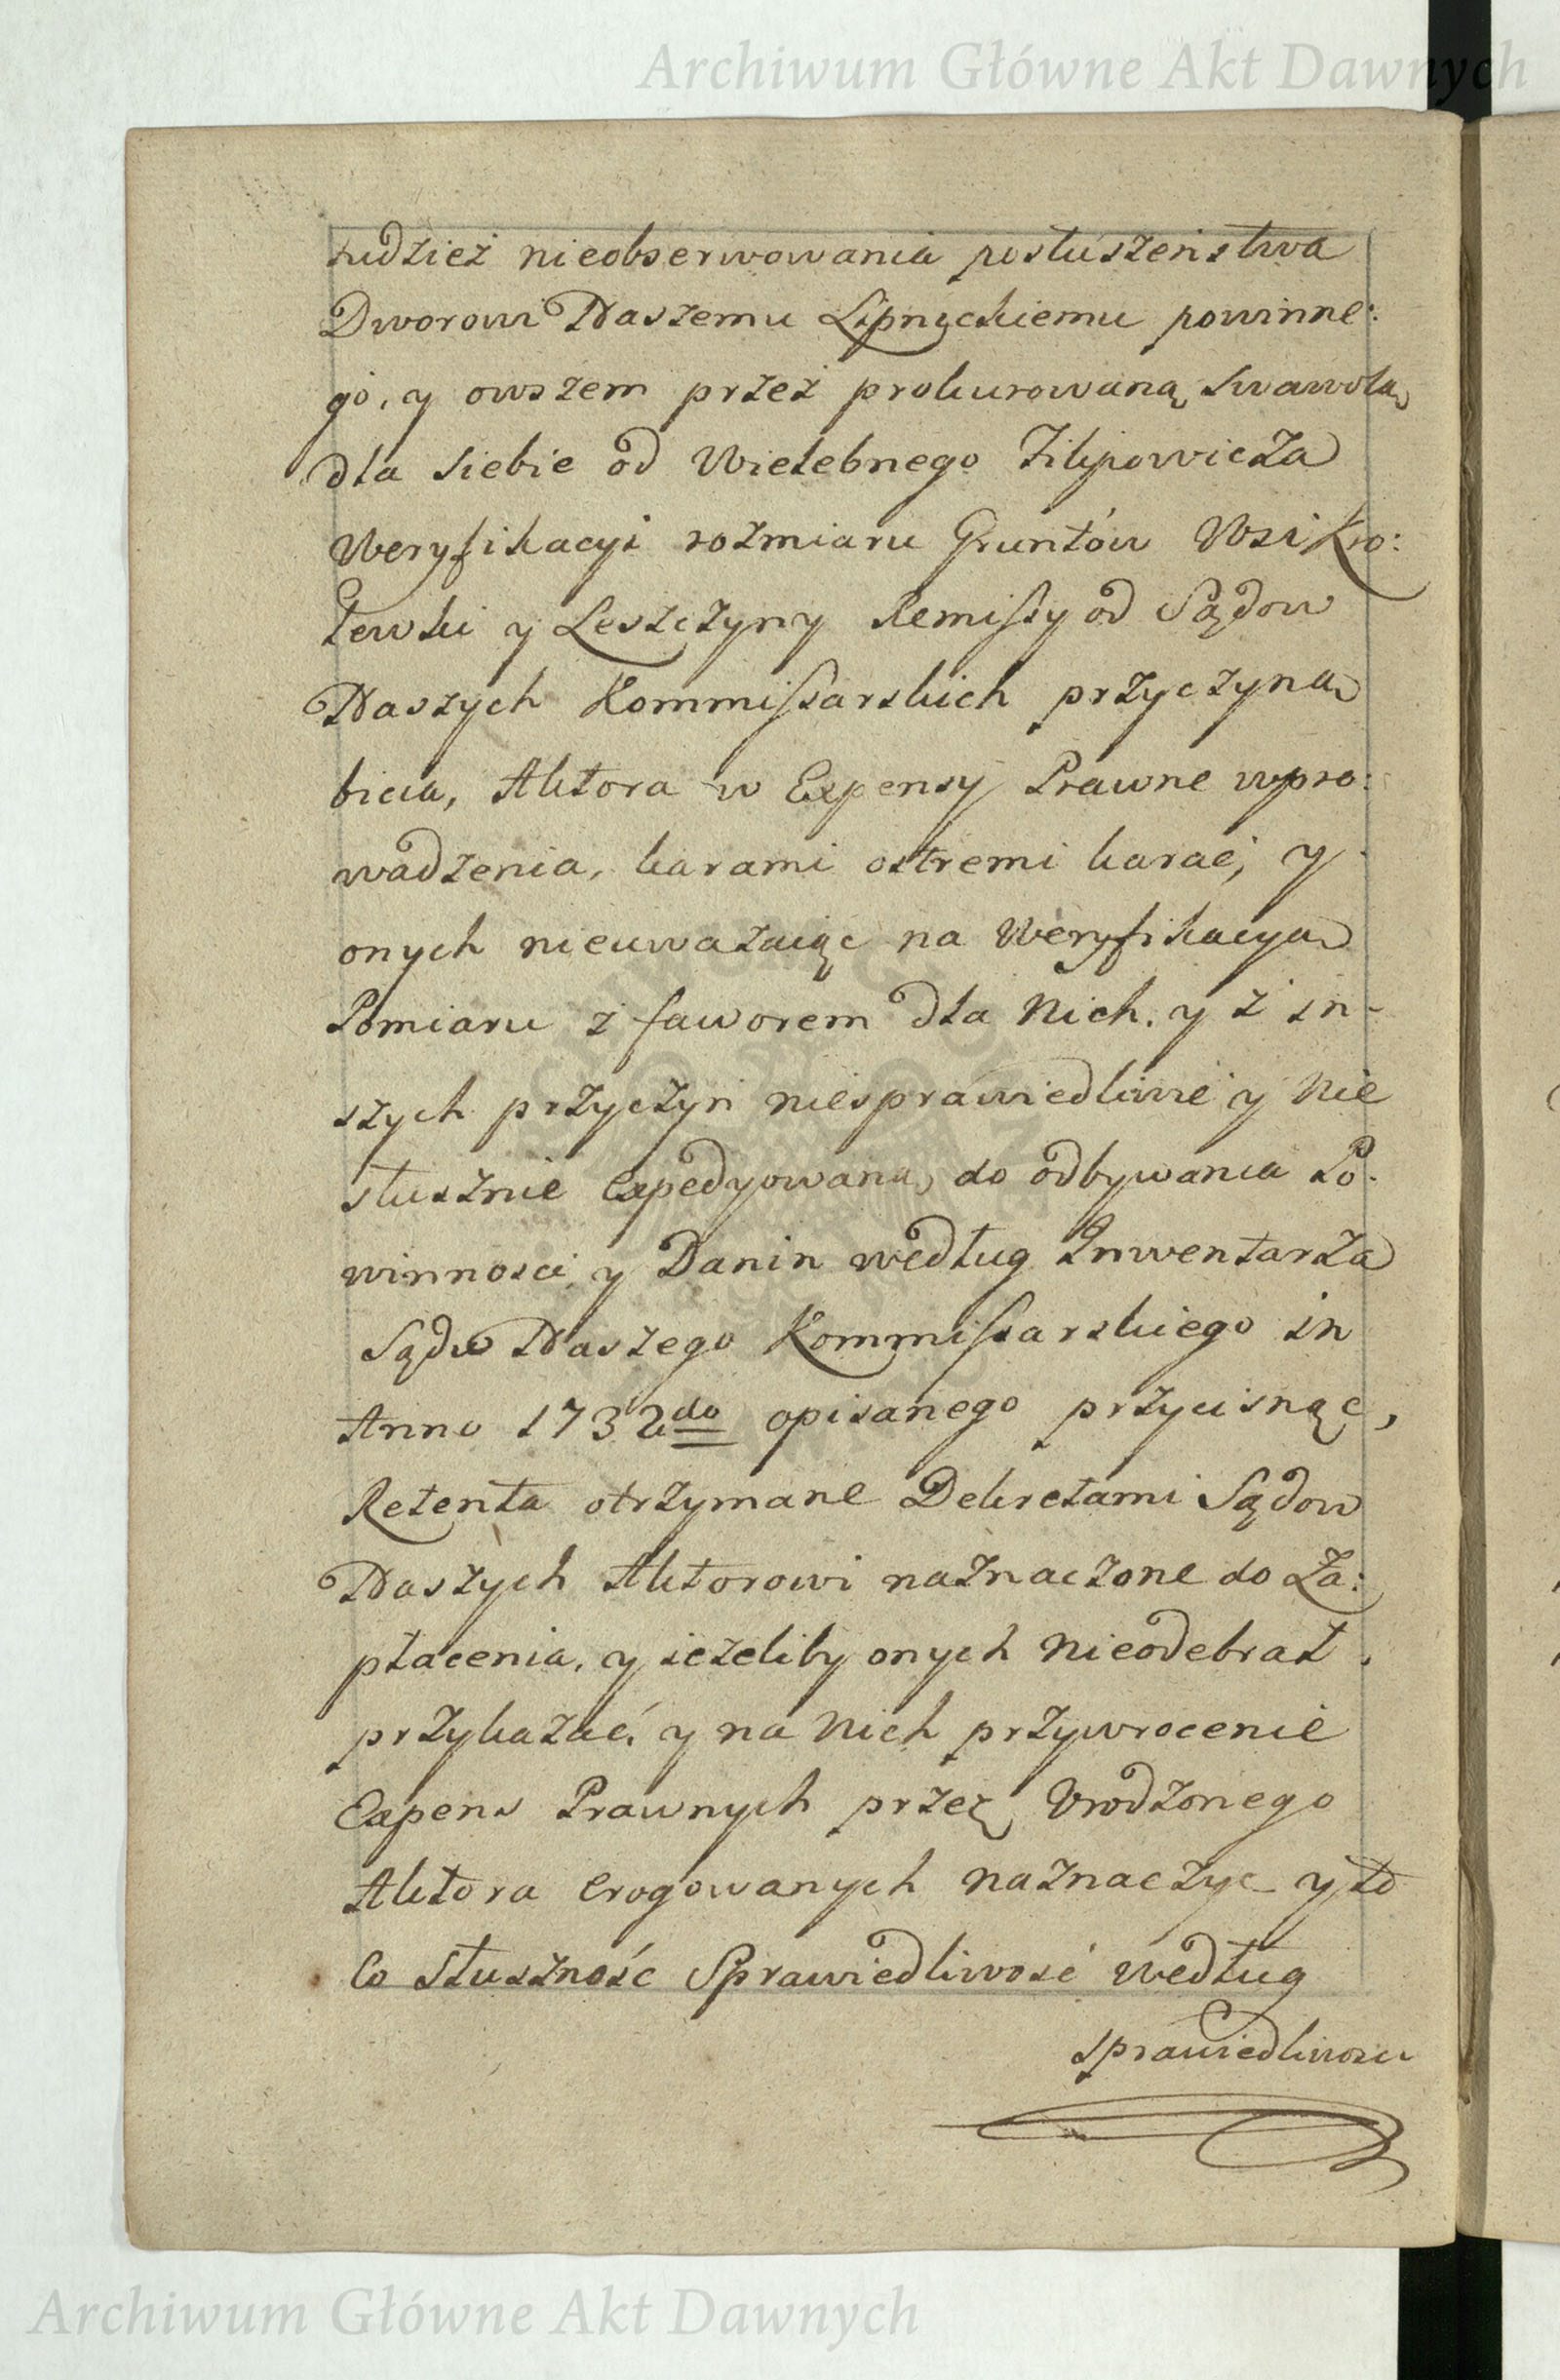 Archiwum Główne Akt Dawnych
tudzież nieobserwowania posłuszeństwa
Dworowi Naszemu Lipnyckiemu powinne:
go, y owszem przez prokurowaną swawolą
dla siebie od Wielebnego Filipowicza
Weryfikacyi rozmiaru Gruntów Wsi Kro:
lewki y Leszczyny Remissy od Sądow
Naszych Kommissarskich przyczyną
bicia, Aktora w Expensy Prawne wpro:
wadzenia, karami ostremi karać, y
onych nieuważaiąc na Weryfikacyą
Pomiaru z faworem dla Nich. y z in-
szych przyczyn niesprawiedliwie y Nie
słusznie expedyowaną, do odbywania Po:
winnosci y Danin według Inwentarza
Sądu Naszego Kommissarskiego in
Anno 1732do opisanego przycisnąć,
Retenta otrzymane Dekretami Sądow
Naszych Aktorowi naznaczone do Za:
płacenia, y ieżeliby onych nieodebrał,
przykazać, y na Nich przywrocenie
Expens Prawnych przez Urodzonego
Aktora erogowanych naznaczyc y to
Co słuszność Sprawiedliwość według
sprawiedliwosci
Archiwum Główne Akt Dawnych